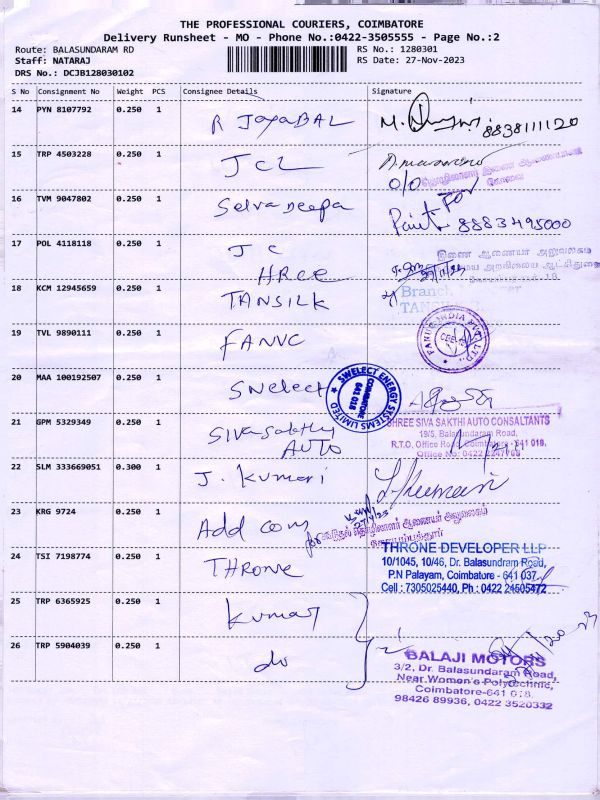 THE PROFESSIONAL COURIERS, COIMBATORE
Delivery Runsheet - MO - Phone No.:0422-3505555 - Page No.:2
Route: BALASUNDARAM RD
RS No.: 1280301
Staff: NATARAJ
RS Date: 27-Nov-2023
DRS No.: DCJB128030102
S No Consignment No Weight PCS Consignee Details Signature
14 PYN 8107792 0.250 1 R JayaBAL M. 8838111120
15 TRP 4503228 0.250 1 JCL
O/O
16 TVM 9047802 0.250 1 Selva Deepa 8883495000
17 POL 4118118 0.250 1 JC
இணை ஆணையர் அலுவலகம்
HRCE
18 KCM 12945659 0.250 1 TANSILK
Branch
19 TVL 9890111 0.250 1 FANUC
FANUC INDIA PVT. LTD.
CBE
20 MAA 100192507 0.250 1 SWelect
SWELECT ENERGY SYSTEMS LIMITED
COIMBATORE
641 018
21 GPM 5329349 0.250 1 Sivasakthy
AUTO
SHREE SIVA SAKTHI AUTO CONSULTANTS
19/5, Balasundaram Road,
R.T.O, Office Road, Coimbatore - 641 018.
Office No: 0422
22 SLM 333669051 0.300 1 J. Kumari J. Kumari
23 KRG 9724 0.250 1 Add com
24 TSI 7198774 0.250 1 THRONE
THRONE DEVELOPER LLP
10/1045, 10/46, Dr. Balasundram Road,
P.N Palayam, Coimbatore - 641 037.
Cell : 7305025440, Ph : 0422 24605472
25 TRP 6365925 0.250 1 Kumar
26 TRP 5904039 0.250 1 do
BALAJI MOTORS
3/2, Dr. Balasundaram Road,
Near Women's Polytechnic,
Coimbatore-641 018.
98426 89936, 0422 3520332